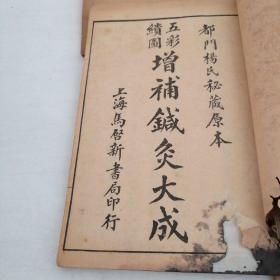 都門楊氏秘藏原本
五彩
繪圖
增補鍼灸大成
上海馬啓新書局印行